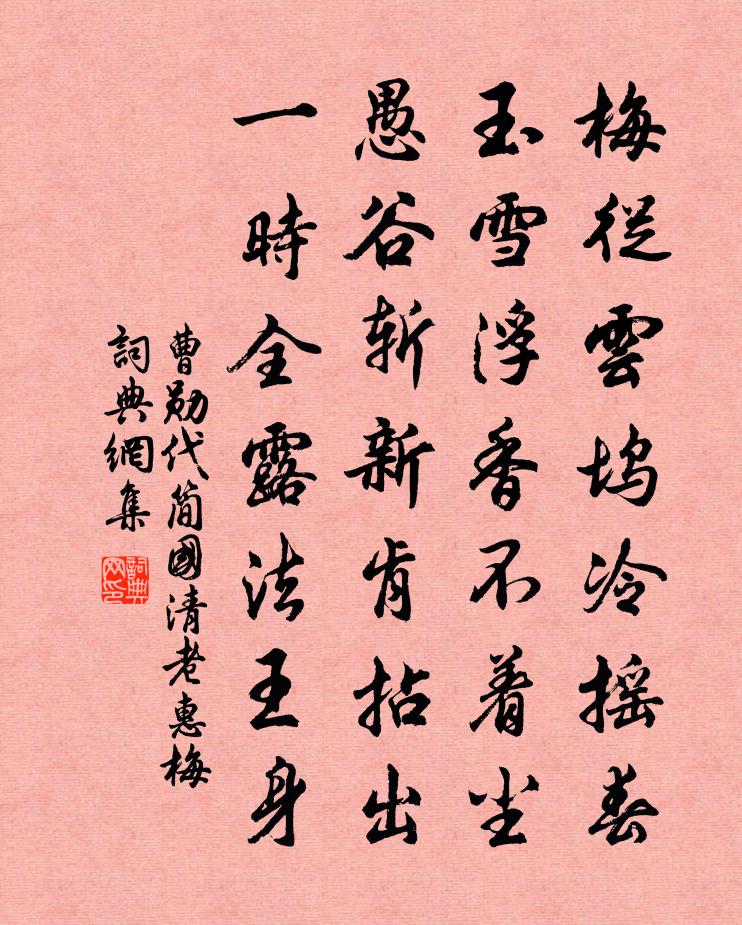 梅從雲塢冷摇春
玉雪浮香不着尘
愚谷斩新肯拈出
一時全露法王身
曹勋代简國清老惠梅
詞典網集
詞典网印